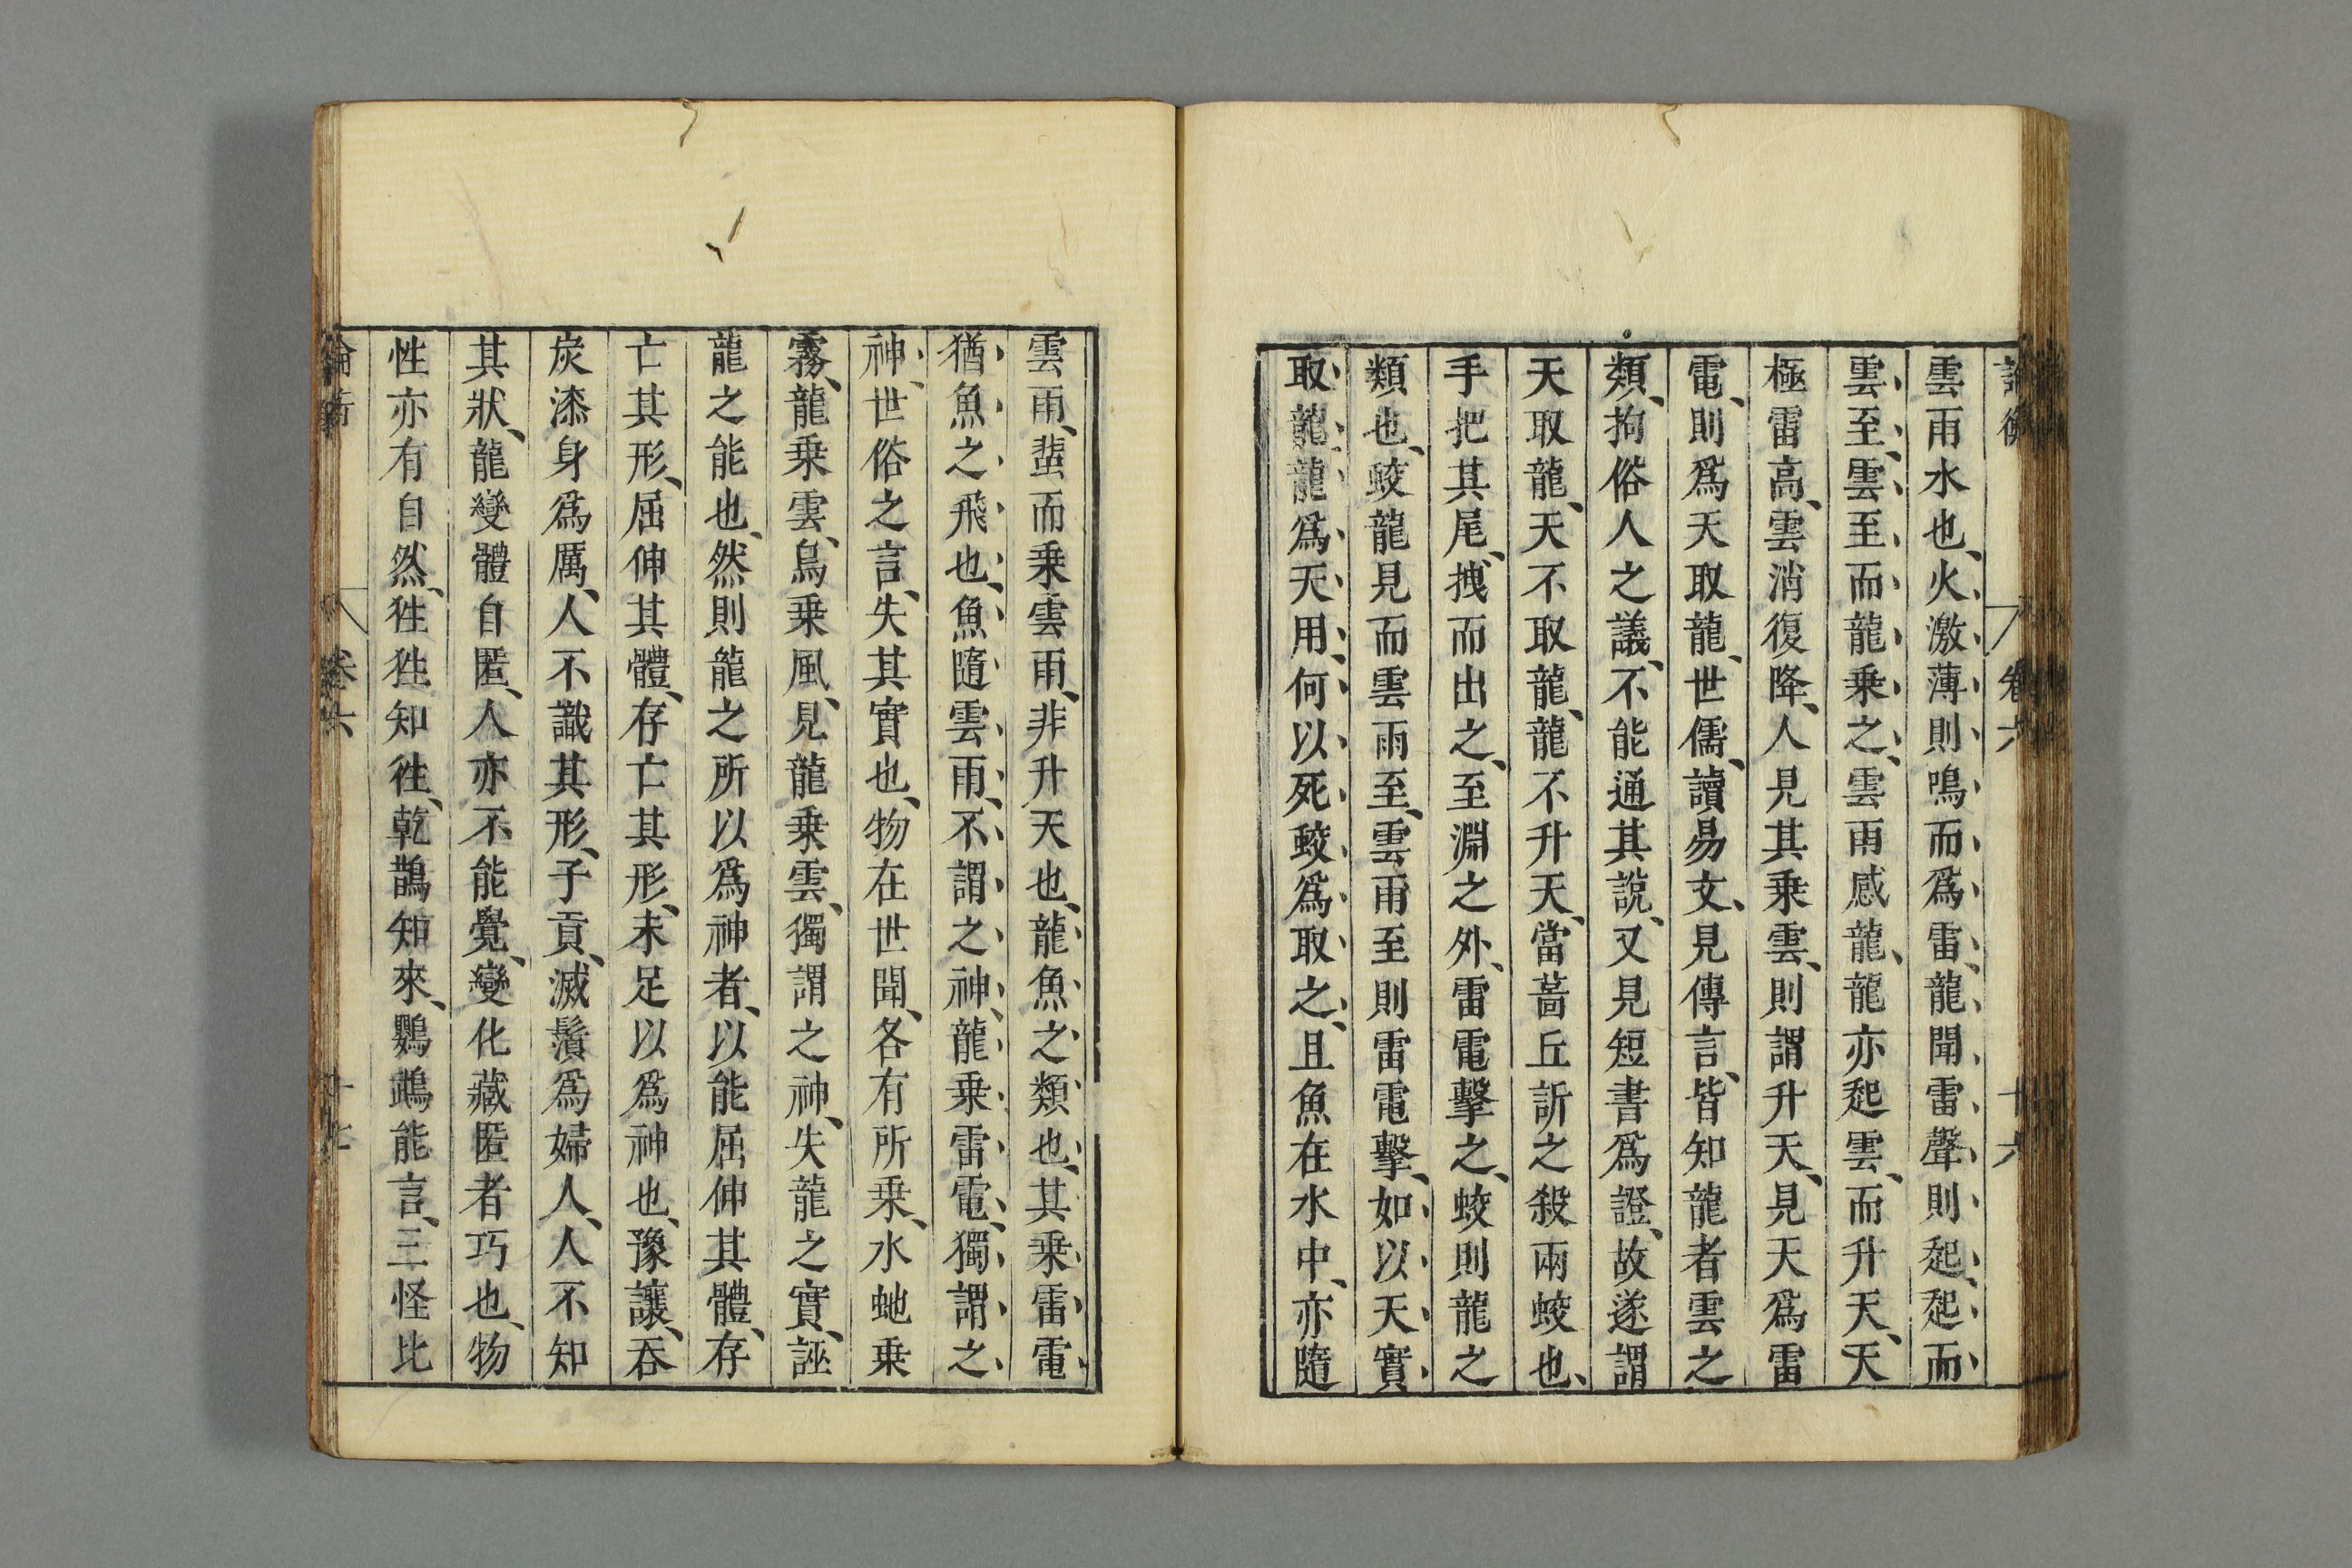 論衡 卷六 十六
雲雨水也、火激薄則鳴而爲雷、龍聞雷聲則起、起而
雲至、雲至而龍乗之、雲雨感龍、龍亦起雲、而升天、天
極雷高、雲消復降、人見其乗雲、則謂升天、見天爲雷
電、則爲天取龍、世儒、讀易文、見傳言、皆知龍者雲之
類、拘俗人之議、不能通其説、又見短書爲證、故遂謂
天取龍、天不取龍、龍不升天、當菑丘訢之殺兩蛟也、
手把其尾、拽而出之、至淵之外、雷電擊之、蛟則龍之
類也、蛟龍見而雲雨至、雲雨至則雷電擊、如以天實
取龍、龍爲天用、何以死蛟爲取之、且魚在水中、亦隨
雲雨、蜚而乗雲雨、非升天也、龍魚之類也、其乗雷電
猶魚之飛也、魚隨雲雨、不謂之神、龍乗雷電、獨謂之
神、世俗之言、失其實也、物在世間、各有所乗、水虵乗
霧、龍乗雲、鳥乗風、見龍乗雲、獨謂之神、失龍之實、誣
龍之能也、然則龍之所以爲神者、以能屈伸其體、存
亡其形、屈伸其體、存亡其形、未足以爲神也、豫讓、吞
炭漆身爲厲、人不識其形、子貢、滅鬚爲婦人、人不知
其狀、龍變體自匿、人亦不能覺、變化藏匿者巧也、物
性亦有自然、狌狌知徃、乾鵲知來、鸚鵡能言、三怪比
論衡 卷六 十七